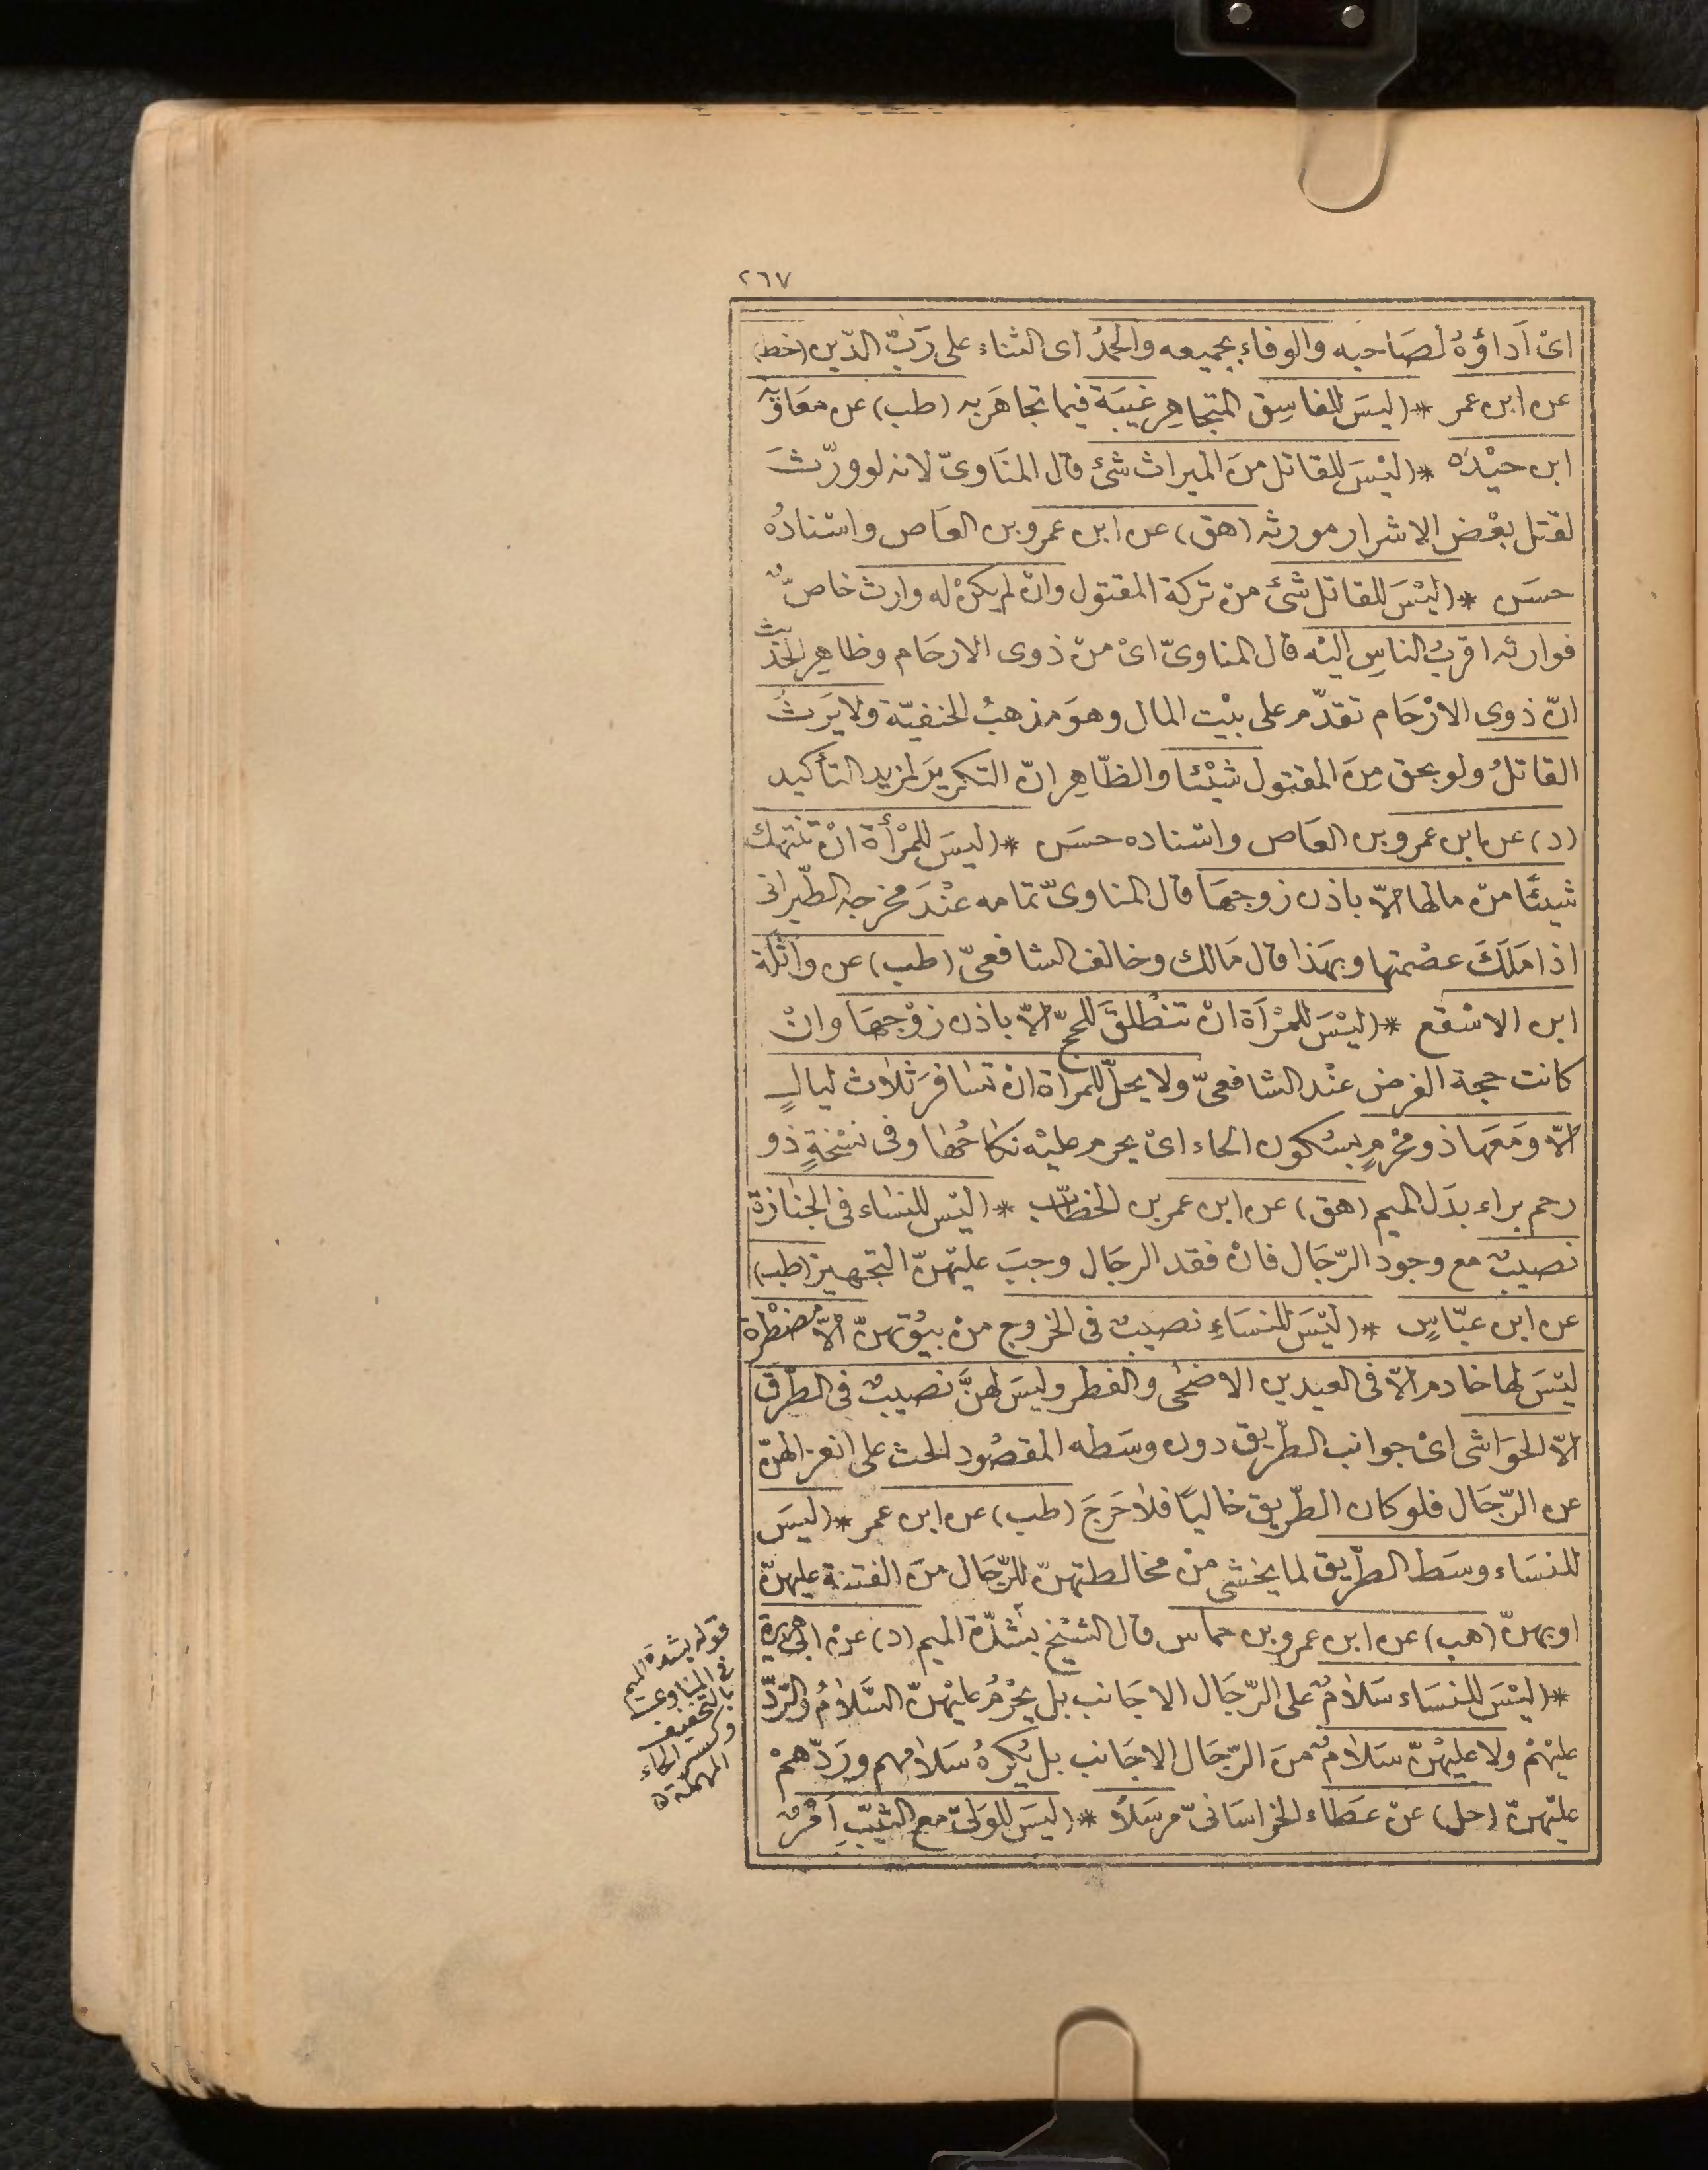 ٢٦٧
اىْ اَداؤُهُ لصَاحبه والوفاء بجميعه والحمدُ اى الثناء على رَبّ الدّين (خط)
عن ابن عمر * (ليسَ للفاسِق المتجاهِر غيبَة فيما تجاهَر به (طب) عن معَاوية
ابن حيْدَه * (ليْسَ للقاتل منَ الميراث شئ قال المنَاوىّ لانه لوورّثَ
لقتل بعْض الاشرار مورثه (هق) عن ابن عمروبن العَاص واسْنادُه
حسَن * (ليْسَ للقاتل شئ منْ تركة المقتول وانْ لم يكنْ له وارث خاصّ
فوارثه اقربُ الناسِ اليْه قال المناوىّ اىْ منْ ذوى الارحَام وظاهِر الحَديث
انّ ذوى الارْحَام تقدّم على بيْت المال وهوَ مذهبُ الحنفيّة ولا يَرثُ
القاتلُ ولو بحق مِنَ المقتول شيْئا والظّاهِر انّ التكريرَ لمزيد التأكيد
(د) عن ابن عمروبن العَاص واسْناده حسَن * (ليسَ للمرْأة انْ تنتهك
شيئًا منْ مالها الاّ باذن زوجهَا قال المناوىّ تمامه عنْدَ مخرجه الطّبرانى
اذا مَلَكَ عصْمتها وبهَذا قال مَالك وخالف الشافعىّ (طب) عن واثلَة
ابن الاسْقع * (ليْسَ للمرْأة انْ تنْطلقَ للحجّ الاّ باذن زوْجهَا وانْ
كانت حجة الفرض عنْد الشافعىّ ولا يحلّ للمرأة انْ تسَافرَ ثلاث ليالٍ
الاّ ومَعَها ذو محْرمٍ بسُكون الحاء اىْ يحرم عليْه نكاحُها وفى نسْخةٍ ذو
رحم براء بدَل الميم (هق) عن ابن عمر بن الخطّاب * (ليْس للنسَاء فى الجنازة
نصيبٌ مع وجود الرّجَال فانْ فقد الرجَال وجبَ عليْهنّ التجهيز (طب)
عن ابن عبّاسٍ * (ليْسَ للنسَاءِ نصيبٌ فى الخروج منْ بيُوتهنّ الاّ مضْطرة
ليْسَ لها خادم الاّ فى العيدين الاضحَى والفطر وليسَ لهنَّ نصيبٌ فى الطّرق
الاّ الحوَاشى اىْ جوانب الطّريق دون وسَطه المقصُود الحث على انعزالهنّ
عن الرّجَال فلو كان الطّريق خاليًا فلا حَرجَ (طب) عن ابن عمر * (ليسَ
للنسَاء وسَط الطّريق لما يخشى منْ مخالطتهنّ للرّجَال منَ الفتنة عليهنّ
اوبهنّ (هب) عن ابن عمروبن حماس قال الشيْخ بشدّة الميم (د) عنْ ابى هريرة
* (ليْسَ للنسَاء سَلامٌ على الرّجَال الاجَانب بل يحْرُمُ عليْهنّ السَّلامُ والرّدّ
عليْهمْ ولا عليْهنّ سَلامٌ منَ الرّجَال الاجَانب بل يُكرهُ سَلامهم ورَدّهمْ
عليْهنّ (حل) عنْ عَطاء الخراسَانىّ مرسَلاً * (ليسَ للوَلىّ مع الثيّبِ اَمْرٌ
قوله بشدة الميم
فى المناوى
بالتخفيف
وكسر الحاء
المهملة ه